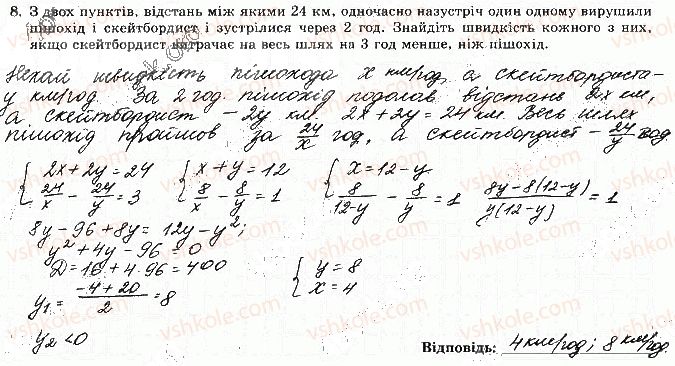 8. З двох пунктів, відстань між якими 24 км, одночасно назустріч один одному вирушили
пішохід і скейтбордист і зустрілися через 2 год. Знайдіть швидкість кожного з них,
якщо скейтбордист витрачає на весь шлях на 3 год менше, ніж пішохід.
Нехай швидкість пішохода x км/год, а скейтбордиста –
y км/год. За 2 год. пішохід подолав відстань 2x км,
а скейтбордист – 2y км. 2x + 2y = 24 км. Весь шлях
пішохід пройшов за 24/x год, а скейтбордист – 24/y год.
{ 2x + 2y = 24 { x + y = 12 { x = 12 - y
24/x - 24/y = 3 8/x - 8/y = 1 8/(12-y) - 8/y = 1 (8y - 8(12-y))/(y(12-y)) = 1
8y - 96 + 8y = 12y - y²;
y² + 4y - 96 = 0
D = 16 + 4·96 = 400 { y = 8
y₁ = (-4 + 20)/2 = 8 x = 4
y₂ < 0
Відповідь: 4 км/год; 8 км/год.
vshkole.com